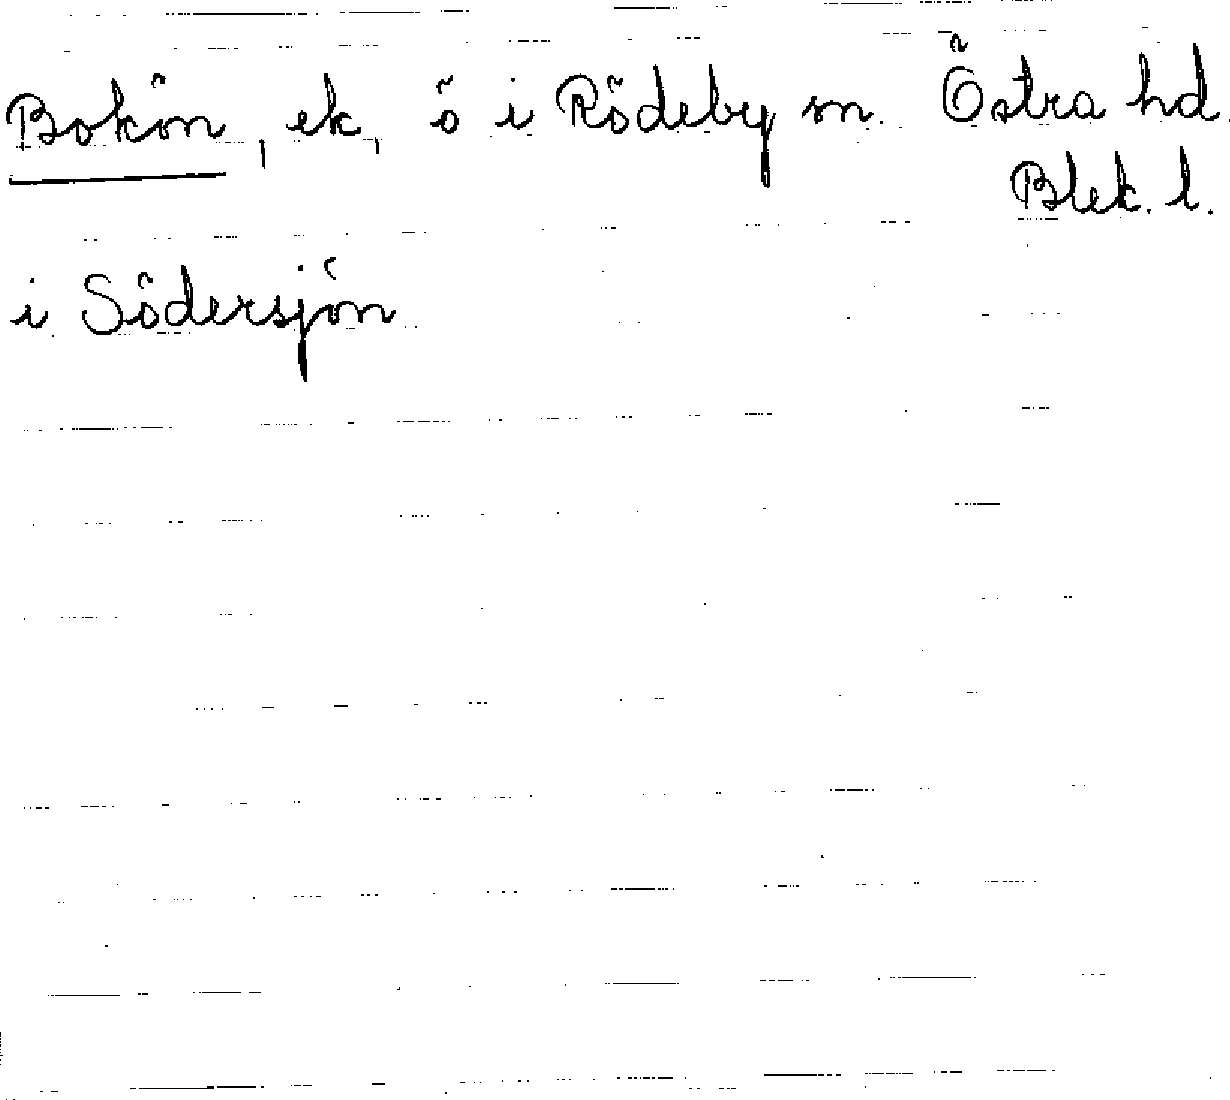 Bokön, ek, ö i Rödeby sn. Östra hd.
Blek. l.
i Södersjön